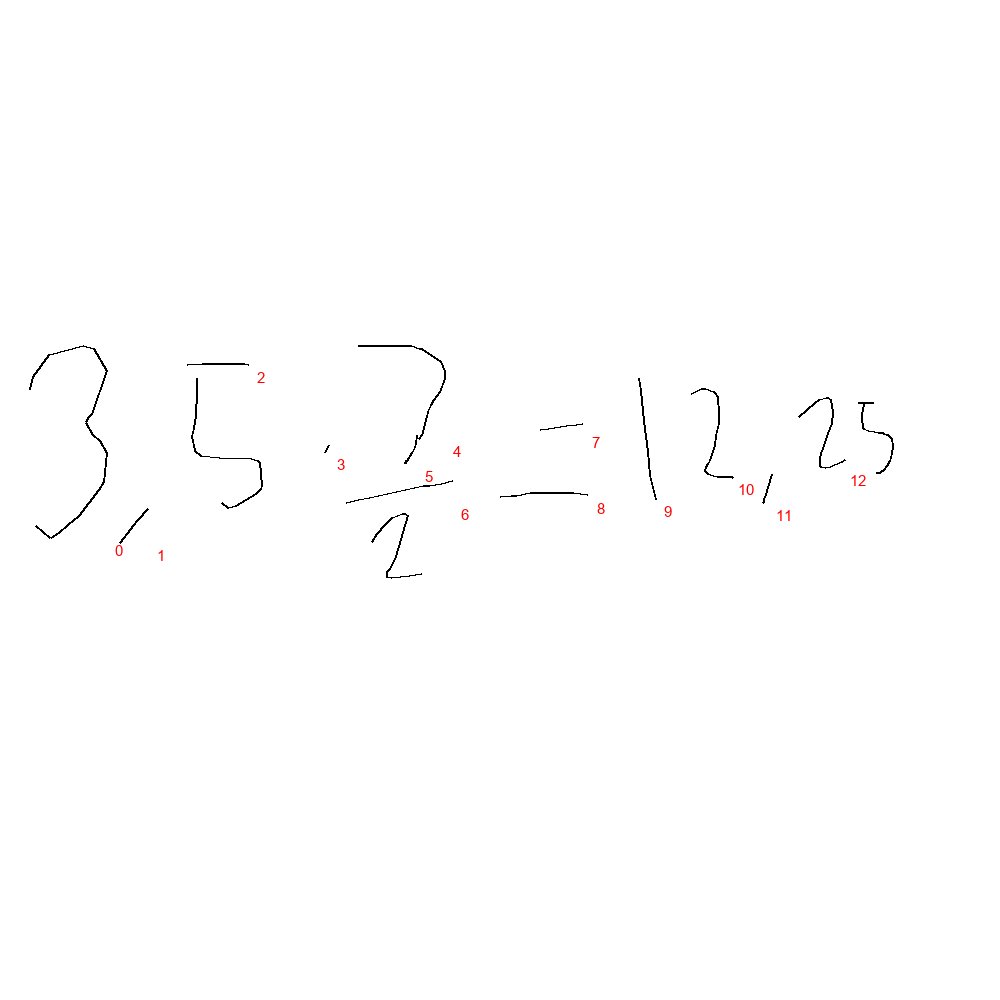 3,5 · 7/2 = 12,25
0 1 2 3 4 5 6 7 8 9 10 11 12